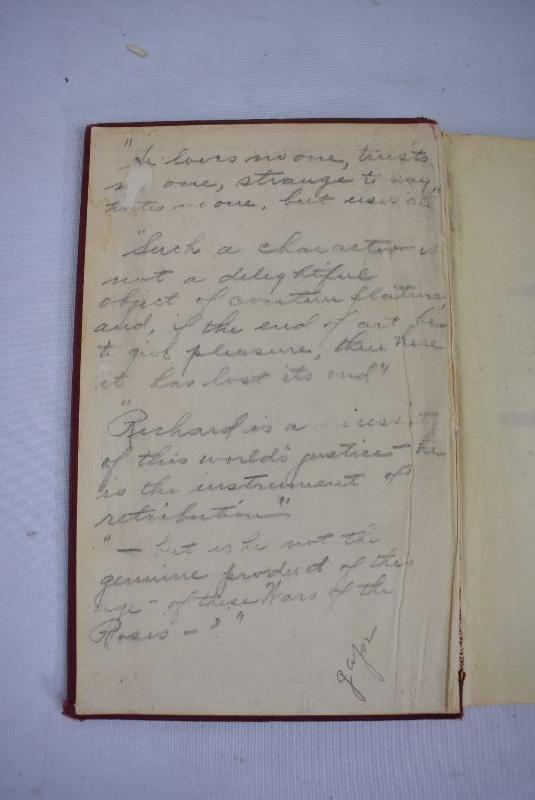 "He loves no one, trusts
no one, strange to say,
hates no one, but uses all"
"Such a character is
not a delightful
object of
and, if the end of art be
to give pleasure, then here
it has lost its end"
"Richard is a necessity
of this world's justice — he
is the instrument of
retribution"
" — but is he not the
genuine product of this
age — of these Wars of the
Roses — ? "